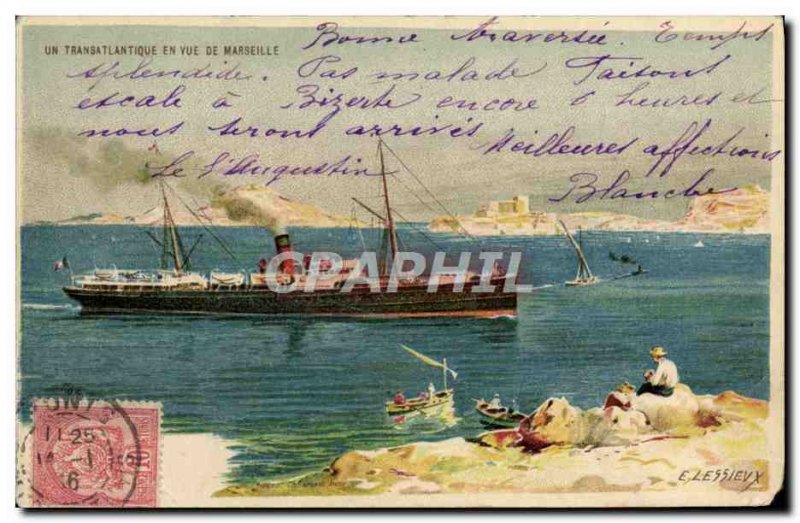 UN TRANSATLANTIQUE EN VUE DE MARSEILLE
Bonne traversée. Temps
splendide. Pas malade Faisons
escale à Bizerte encore 6 heures et
nous serons arrivés
Meilleures affections
Le St Augustin
Blanche
CAPHIL
11 25
6
10
E. LESSIEUX